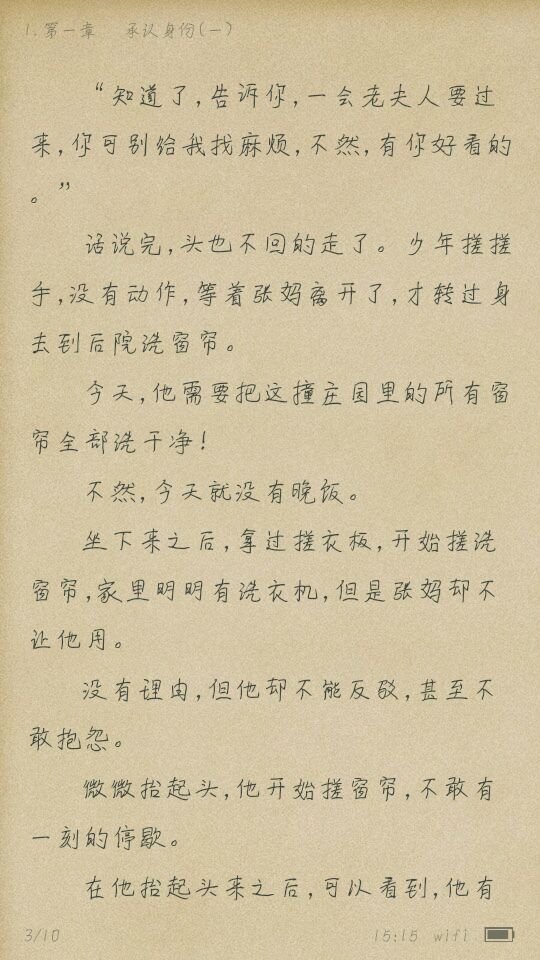 1.第一章 承认身份(一)
“知道了,告诉你,一会老夫人要过
来,你可别给我找麻烦,不然,有你好看的
。”
话说完,头也不回的走了。少年搓搓
手,没有动作,等着张妈离开了,才转过身
去到后院洗窗帘。
今天,他需要把这撞庄园里的所有窗
帘全部洗干净!
不然,今天就没有晚饭。
坐下来之后,拿过搓衣板,开始搓洗
窗帘,家里明明有洗衣机,但是张妈却不
让他用。
没有理由,但他却不能反驳,甚至不
敢抱怨。
微微抬起头,他开始搓窗帘,不敢有
一刻的停歇。
在他抬起头来之后,可以看到,他有
3/10 15:15 wifi